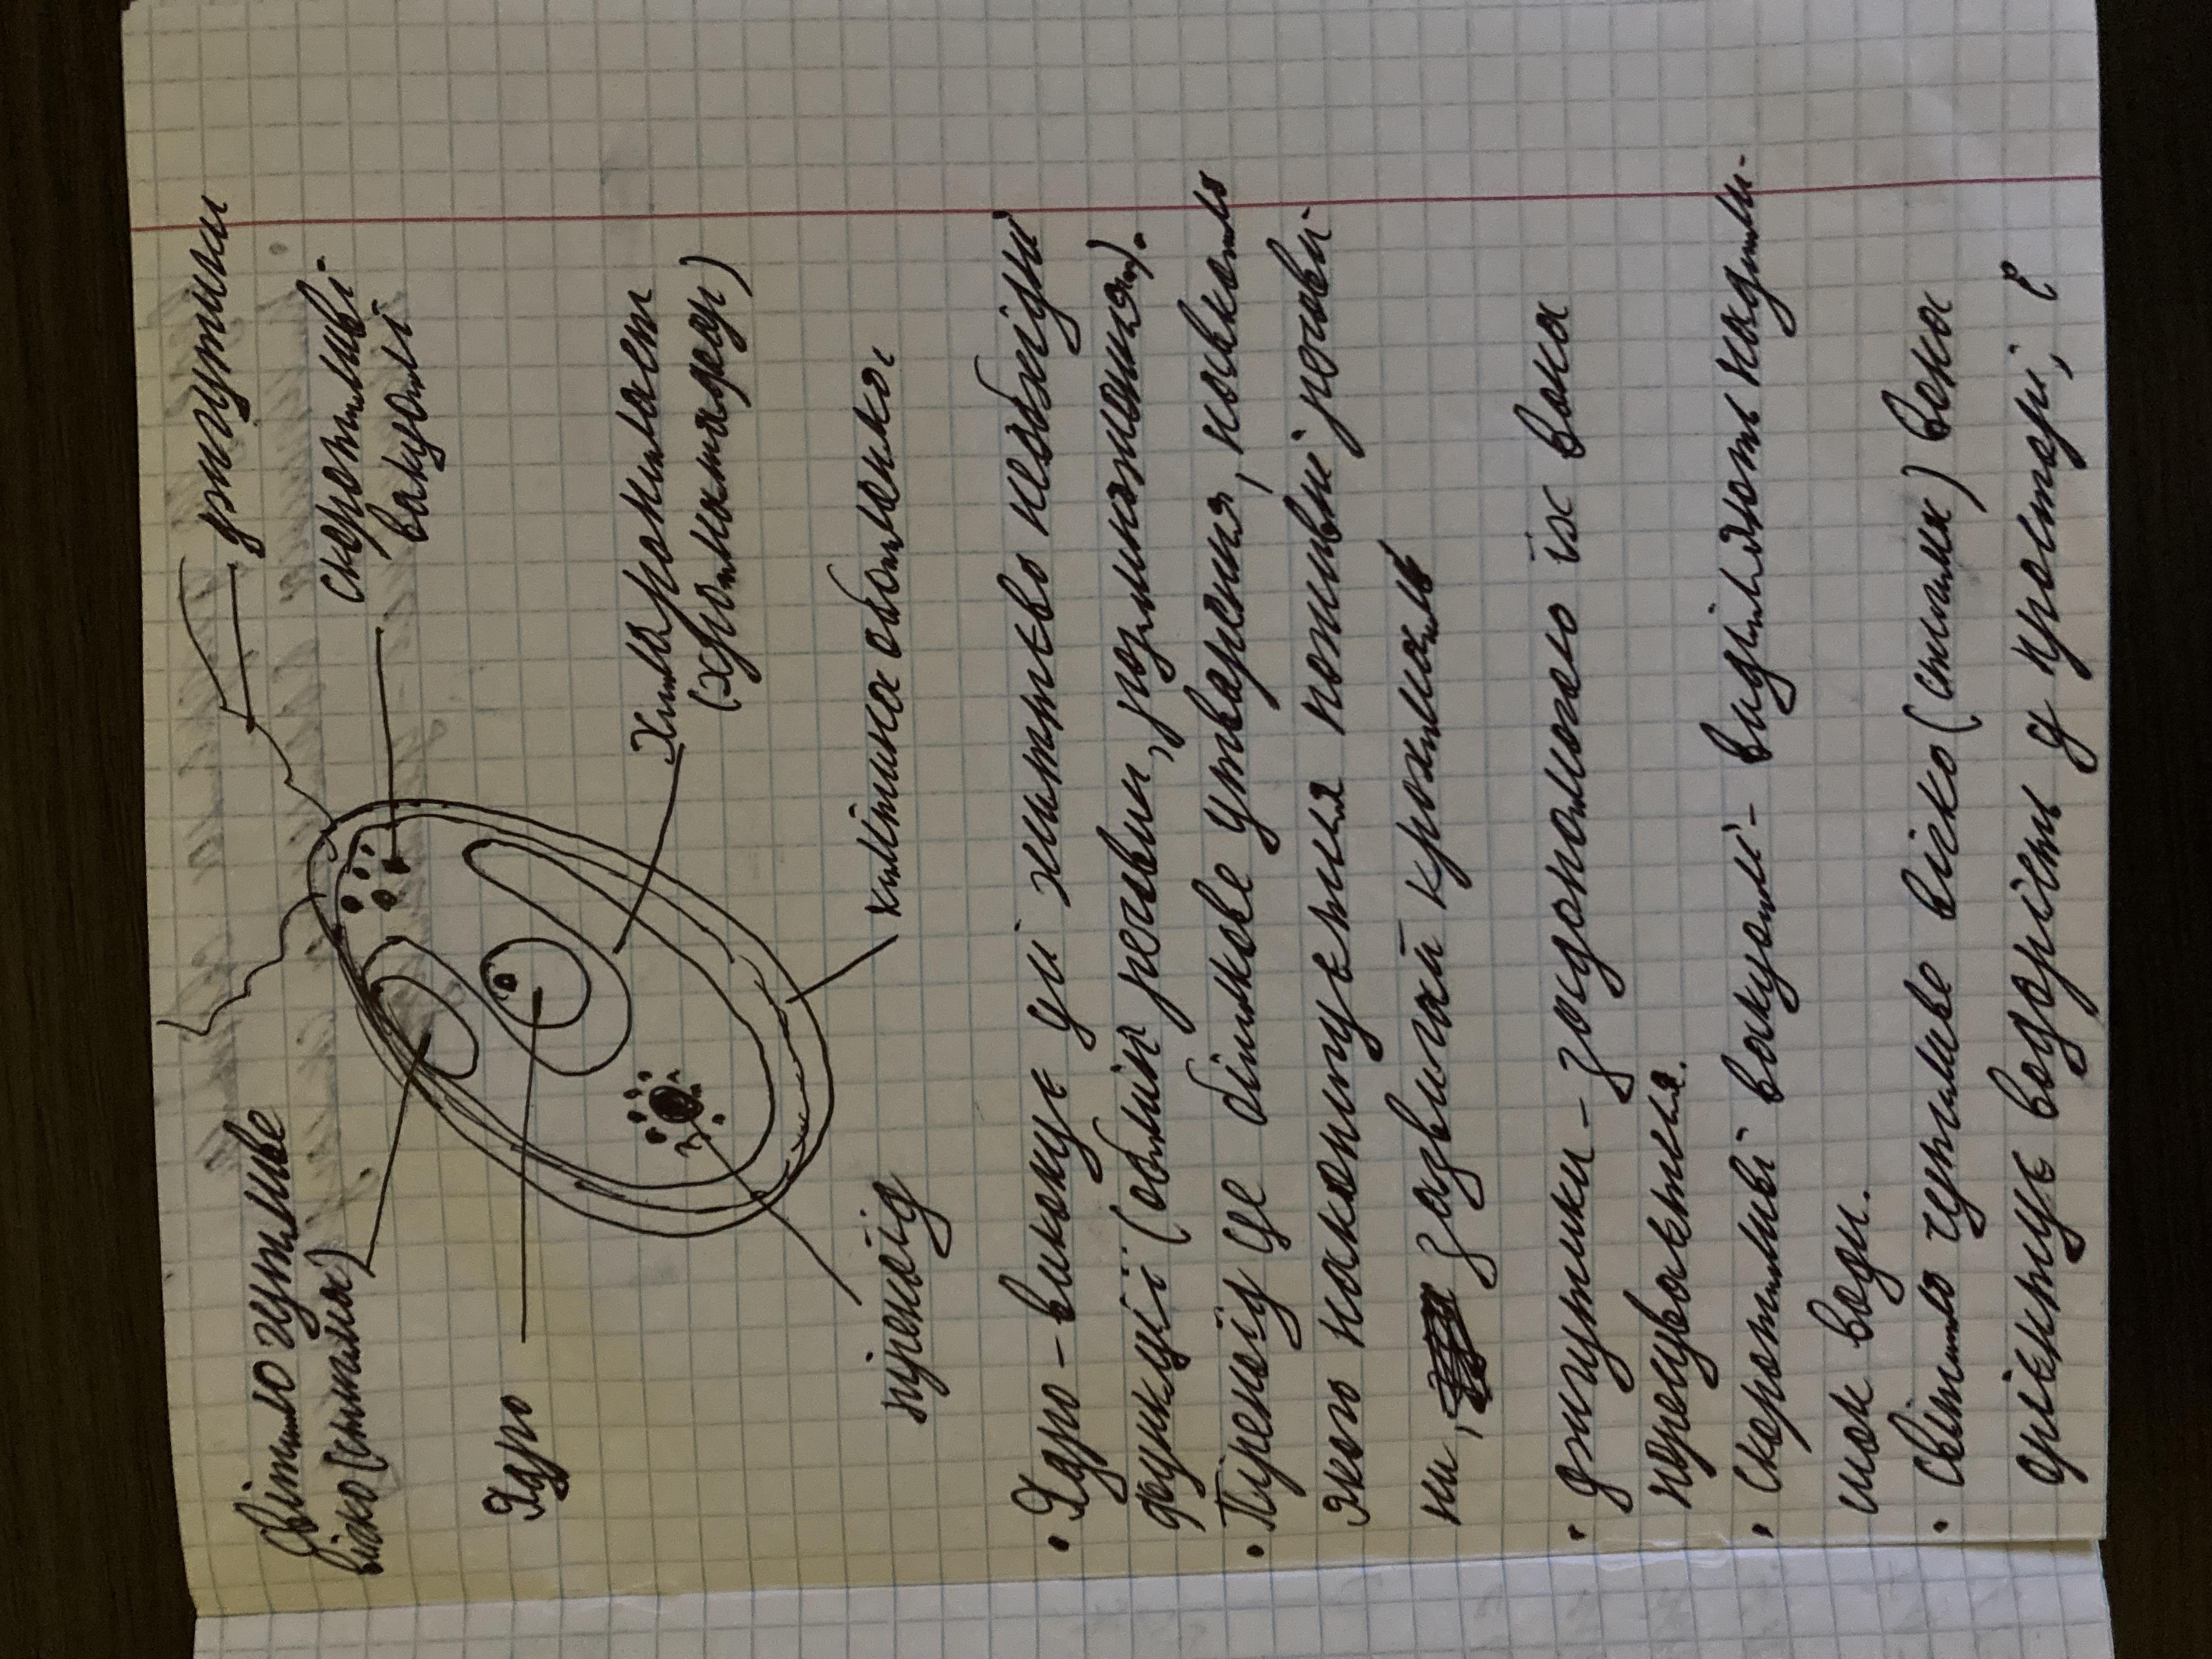 Світло чутливе
вічко (стигма)
джгутики
скоротливі
вакуолі
Ядро
Хлоропласт
(хроматофор)
піреноїд
клітинна оболонка
• Ядро - виконує усі життєво необхідні
функції (обмін речовин, розмноження).
• Піреноїд це білкове утворення, навколо
якого накопичуєтися поживні речови-
ни, зазвичай крохмаль
• джгутики - за допомогою їх вона
пересуваєтися.
• скоротливі вакуолі - виділяють надли-
шок води.
• світло чутливе вічко (стигма) вона
орієнтує водорість у просторі, є